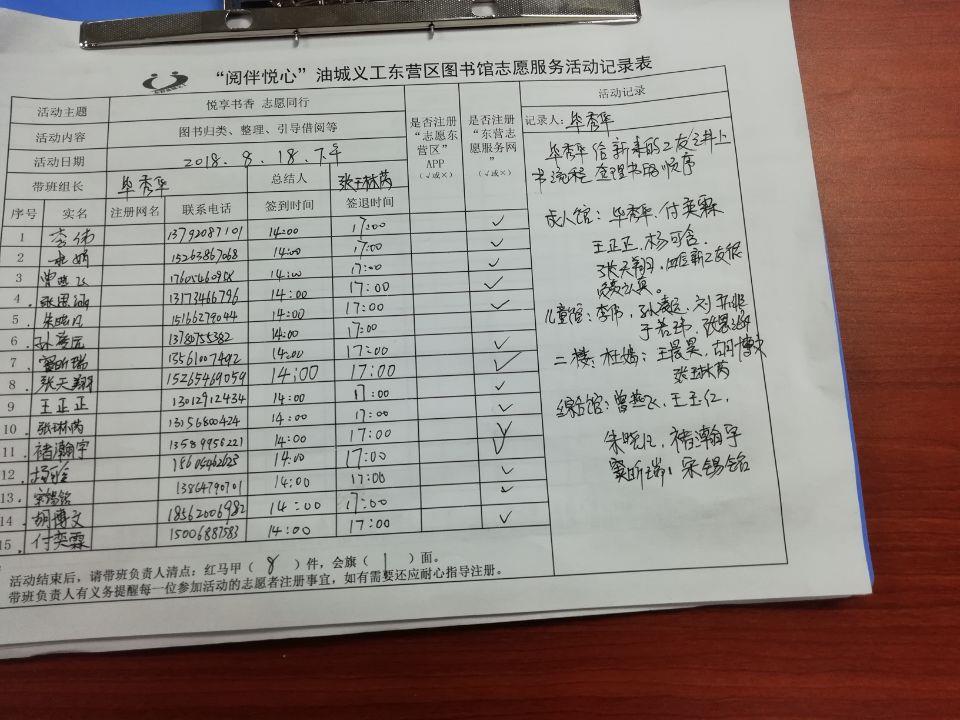 “阅伴悦心”油城义工东营区图书馆志愿服务活动记录表
活动主题 悦享书香 志愿同行 是否注册“志愿东营区”APP（√或×） 是否注册“东营志愿服务网”（√或×） 活动记录
活动内容 图书归类、整理、引导借阅等
活动日期 2018.8.18.下午
带班组长 毕秀华 总结人 张玉林芮
序号 实名 注册网名 联系电话 签到时间 签退时间
1 李伟 13792087101 14:00 17:00 ✓
2 杜娟 15263867068 14:00 17:00 ✓
3 曾燕飞 14:00 17:00 ✓
4. 张思涵 13173466796 14:00 17:00 ✓
5. 朱晓凡 15166279044 14:00 17:00 ✓
6 孙凌远 14:00 17:00
7. 窦昕瑞 13561007492 14:00 17:00 ✓
8. 张天翔 15265469059 14:00 17:00 ✓
9 王正正 13012912434 14:00 17:00 ✓
10. 张琳芮 13156800424 14:00 17:00 ✓
11. 褚瀚宇 13589958221 14:00 17:00 ✓
12. 杨可含 14:00 17:00 ✓
13. 宋锡铭 13864790701 14:00 17:00 ✓
14 胡博文 18562006982 14:00 17:00 ✓
15. 付奕霖 15006887583 14:00 17:00 ✓
活动结束后，请带班负责人清点：红马甲（8）件，会旗（1）面。
带班负责人有义务提醒每一位参加活动的志愿者注册事宜，如有需要还应耐心指导注册。
记录人：毕秀华
毕秀华给新来的工友讲上
书流程 整理书的顺序
成人馆：毕秀华，付奕霖
王正正，杨可含，
张天翔，四区新工友很
认真。
儿童馆：李伟，孙凌远，刘
于若玮，张思涵
二楼：杜娟，王晨昊，胡博文
张玉林芮
综合馆：曾燕飞，王玉仁，
朱晓凡，褚瀚宇
窦昕瑞，宋锡铭